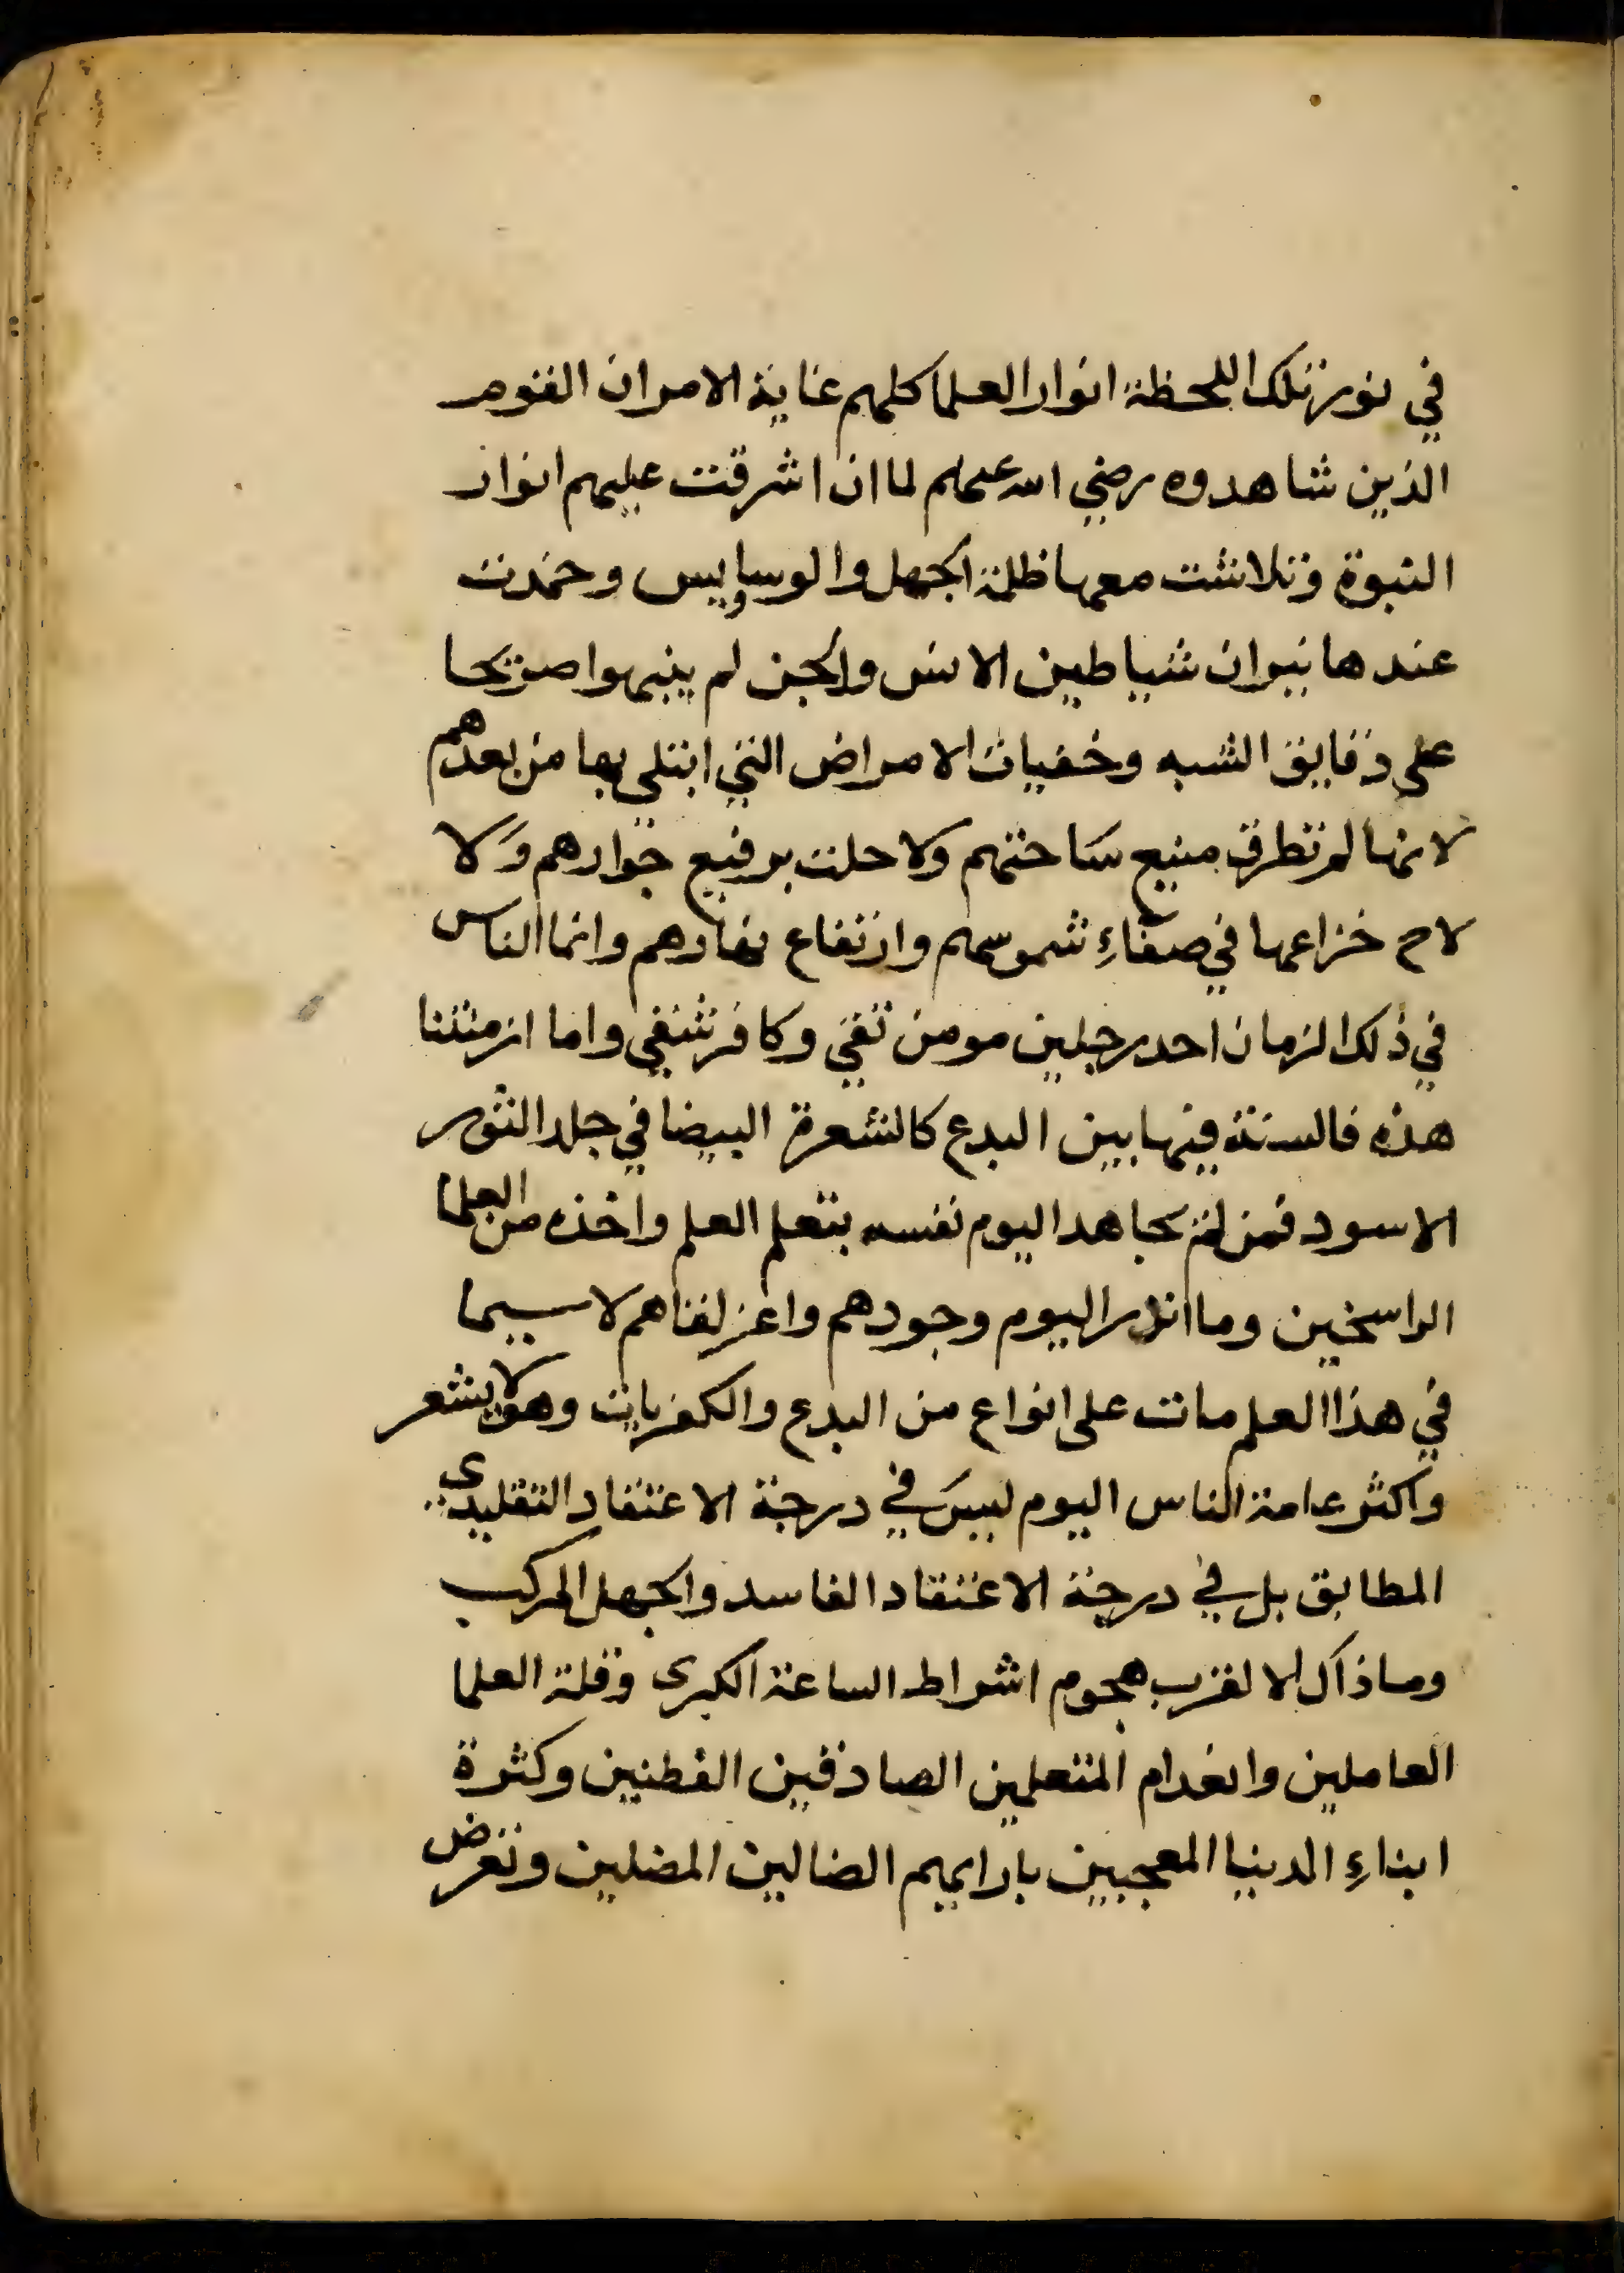 في نور تلك اللحظة انوار العلما كلهم غاية الامر ان القوم
الذين شاهدوه رضي الله عنهم لما ان اشرقت عليهم انوار
النبوة وتلاشت معها ظلمة الجهل والوساويس وخمدت
عندها نيران شياطين الانس والجن لم ينبهوا صريحا
على دقايق الشبه وخفيات الامراض التي ابتلي بها من بعدهم
لانها لم تطرق منيع ساحتهم ولا حلت برفيع جوارهم ولا
لاح خزاعها في صفاءِ شموسهم وارتفاع نهارهم وانما الناس
في ذلك الزمان احد رجلين مومن تقي وكافر شقي واما ازمتتنا
هذه فالسنة فيها بين البدع كالشعرة البيضا في جلد الثور
الاسود فمن لم يجاهد اليوم نفسه بتعلم العلم واخذه من العلما
الراسخين وما اندر اليوم وجودهم واعز لقاهم لا سيما
في هذا العلم مات على انواع من البدع والكفريات وهو لا يشعر
واكثر عامة الناس اليوم ليس في درجة الاعتقاد التقليدي
المطابق بل في درجة الاعتقاد الفاسد والجهل المركب
وما ذاك الا لقرب هجوم اشراط الساعة الكبرى وقلة العلما
العاملين وانعدام المتعلمين الصادقين الفطنين وكثرة
ابناءِ الدنيا المعجبين بارايهم الضالين المضلين وتعرض